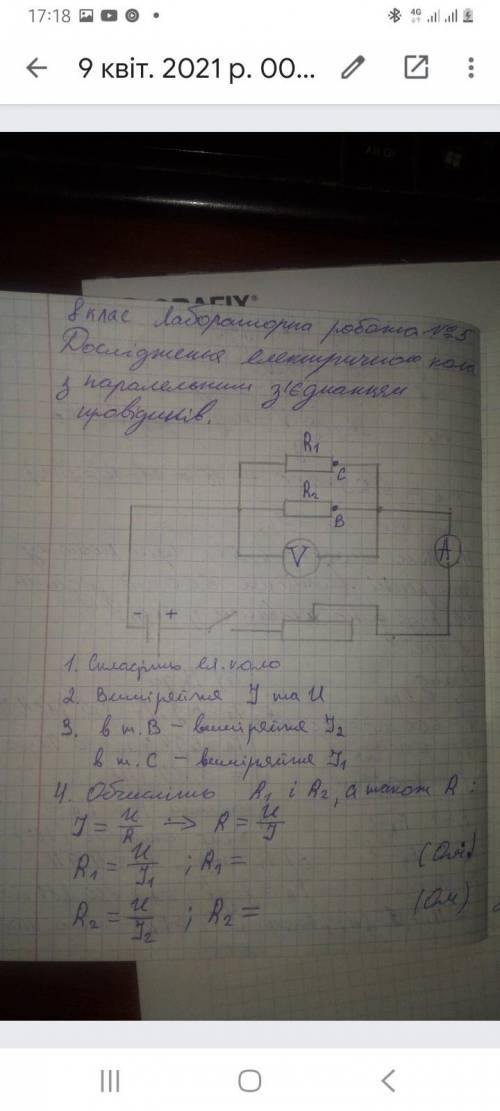 17:18
4G
9 квіт. 2021 р. 00...
8 клас Лабораторна робота №5
Дослідження електричного кола
з паралельним з'єднанням
провідників.
R1
C
R2
B
V
A
- +
1. Складіть ел. коло
2. Виміряйте I та U
3. в т. B – виміряйте I2
в т. C – виміряйте I1
4. Обчисліть R1 і R2, а також R:
I = U/R → R = U/I
R1 = U/I1 ; R1 = (Ом)
R2 = U/I2 ; R2 = (Ом)